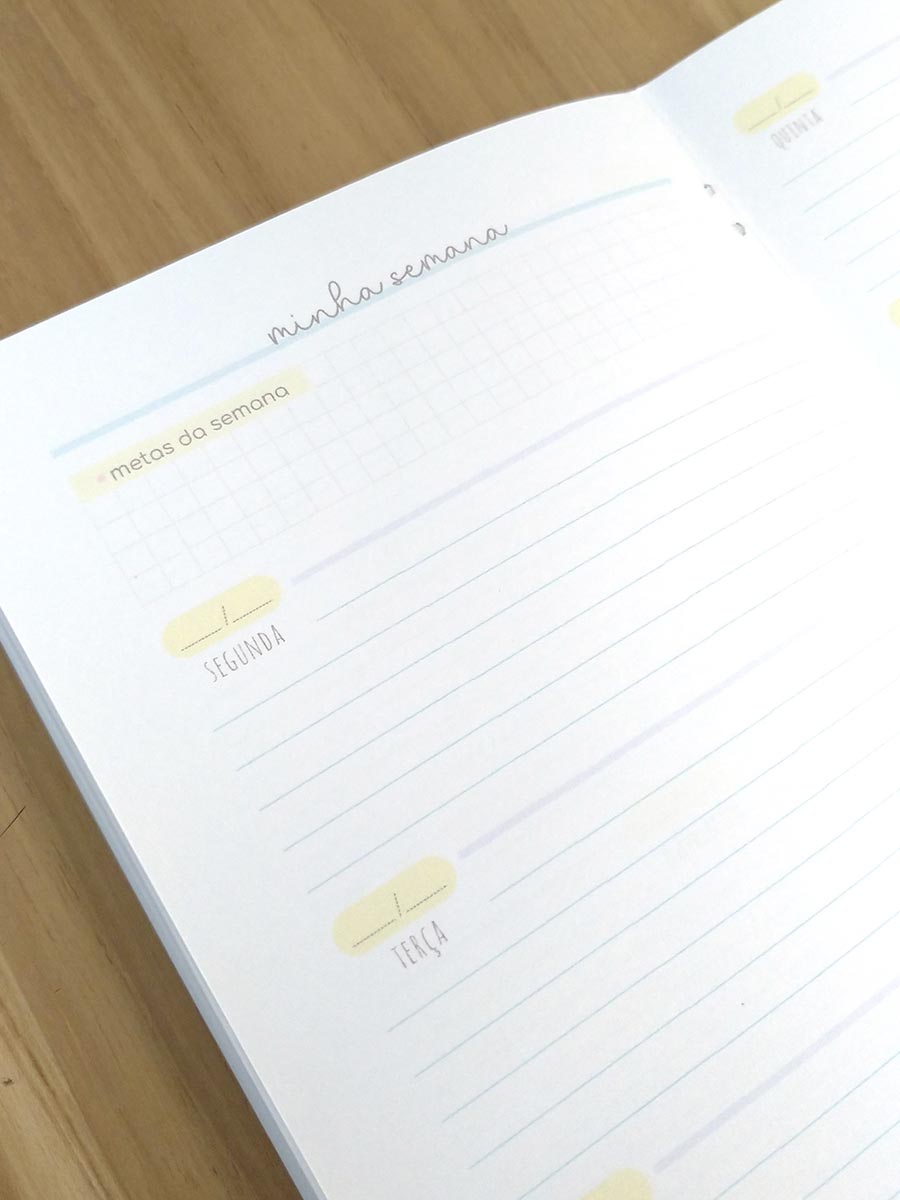 minha semana
metas da semana
__/__
SEGUNDA
__/__
TERÇA
__/__
QUINTA